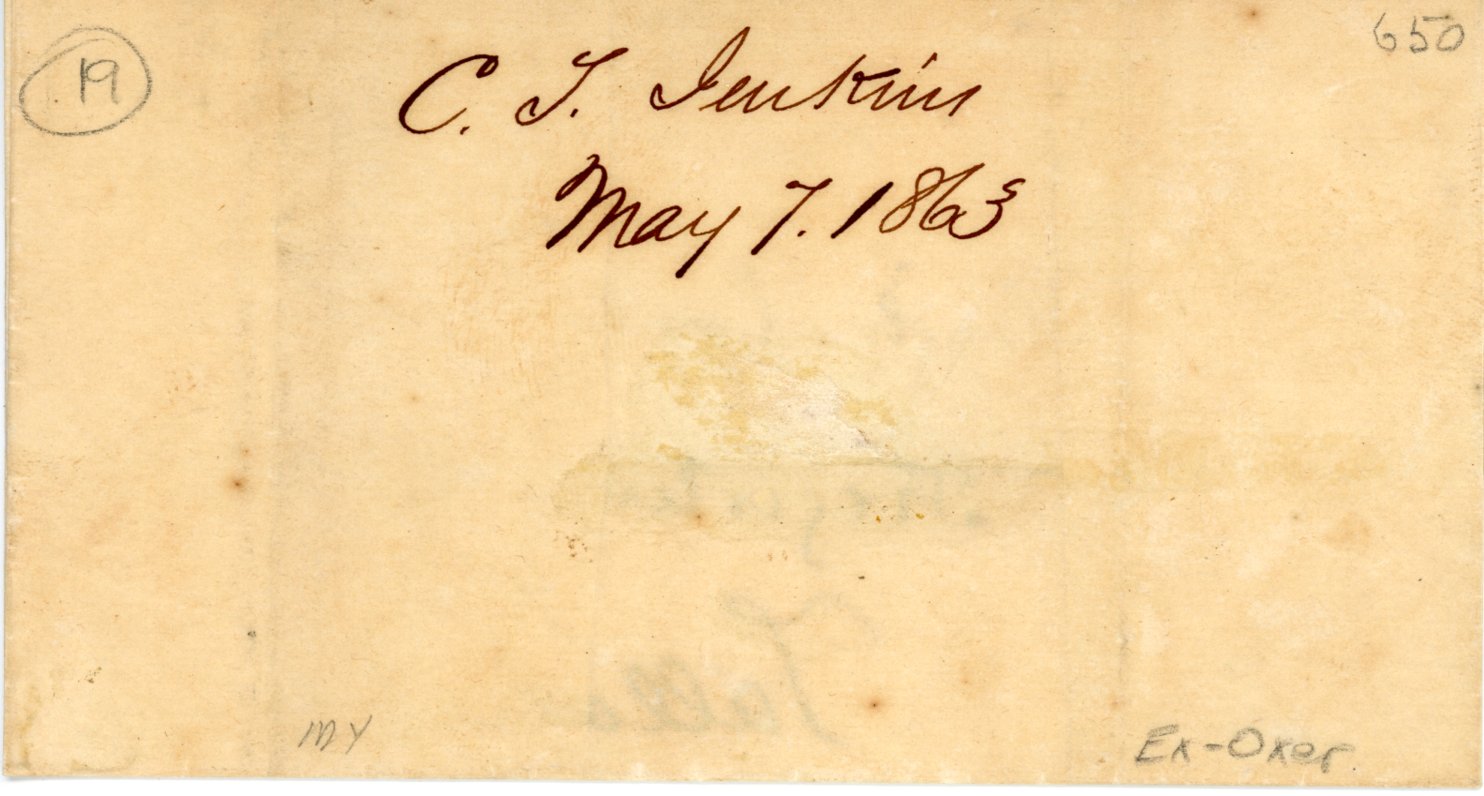 19
650
C. T. Jenkins
May 7. 1863
my
Ex-Oxer